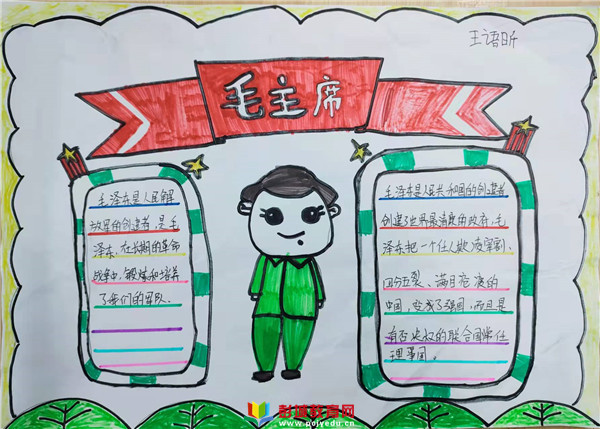 王语昕
毛主席
毛泽东是人民解
放军的创造者,是毛
泽东,在长期的革命
战争中,锻炼和培养
了我们的军队、
毛泽东是人民共和国的创造者
创造了世界最清廉的政府,毛
泽东把一个任人欺凌宰割、
四分五裂、满目疮痍的
中国,变成了强国,而且是
有否决权的联合国常任
理事国。
彭城教育网
www.pojyedu.cn